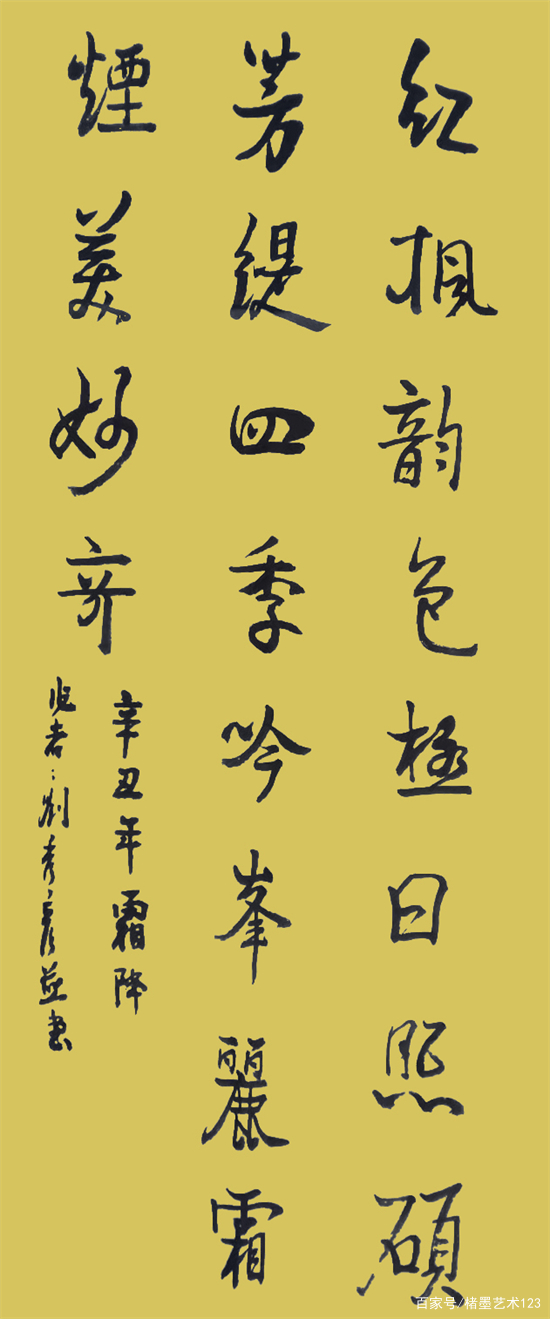 红枫韵色極日照硕
芳缇四季吟峯麗霜
煙美妙齐
辛丑年霜降
作者：刘秀彦並书
百家号/楮墨艺术123